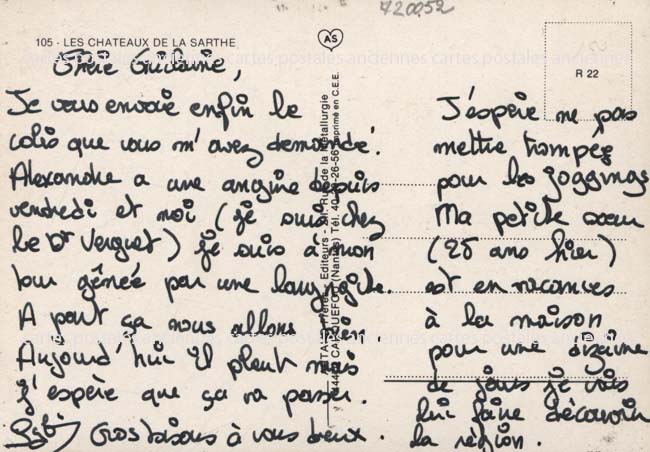 720052
105 - LES CHATEAUX DE LA SARTHE
AS
R 22
Chère Guilaine,
Je vous envoie enfin le
colis que vous m'avez demandé.
Alexandre a une angine depuis
vendredi et moi (je suis chez
le Dr Verguet) je suis à mon
tour gênée par une laryngite.
A part ça nous allons bien
Aujourd'hui il pleut mais
j'espère que ça va passer.
Gros bisous à vous deux.
J'éspère ne pas
mettre trompée
pour les joggings
Ma petite sœur
(25 ans hier)
est en vacances
à la maison
pour une dizaine
de jours je vais
lui faire découvrir
la région.
Editeurs - Rue de la Métallurgie
CARQUEFOU (Nantes) Tél. Imprimé en C.E.E.
cartes postales anciennes cartes postales anciennes